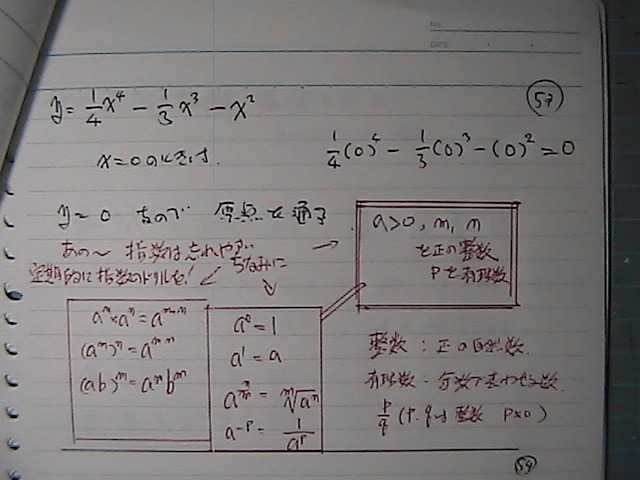 NO.
DATE
y = 1/4 x^4 - 1/3 x^3 - x^2
57
x=0のときは、
1/4 (0)^4 - 1/3 (0)^3 - (0)^2 = 0
y=0 なので 原点を通る
あの〜 指数は忘れやすい →
定期的に指数のドリルを! ↙ ちなみに ↓
a>0, m, n
を正の整数
pを有理数
a^m × a^n = a^{m+n}
(a^m)^n = a^{mn}
(ab)^m = a^m b^m
a^0 = 1
a^1 = a
a^{n/m} = m√a^n
a^{-p} = 1/a^p
整数:正の自然数
有理数:分数で表わせる数
p/q (p, qは整数 p≠0)
59